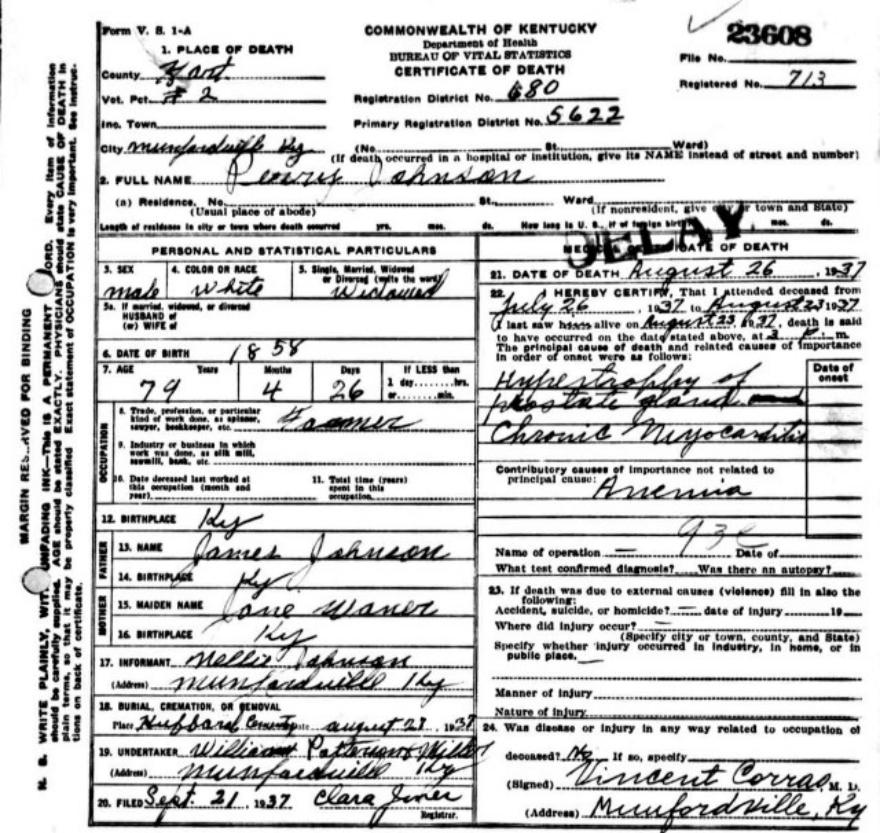 Form V. S. 1-A
COMMONWEALTH OF KENTUCKY
Department of Health
BUREAU OF VITAL STATISTICS
CERTIFICATE OF DEATH
23608
File No.
Registered No. 713
1. PLACE OF DEATH
County Hart
Vot. Pct. # 2
Registration District No. 680
Inc. Town
Primary Registration District No. 5622
City Munfordville Ky (No. St. Ward)
(If death occurred in a hospital or institution, give its NAME instead of street and number)
2. FULL NAME Johnson
(a) Residence. No. St., Ward.
(Usual place of abode) (If nonresident, give city or town and State)
Length of residence in city or town where death occurred yrs. mos. ds. How long in U. S., if of foreign birth? mos. ds.
DELAY
PERSONAL AND STATISTICAL PARTICULARS
3. SEX
male
4. COLOR OR RACE
White
5. Single, Married, Widowed
or Divorced (write the word)
Widowed
5a. If married, widowed, or divorced
HUSBAND of
(or) WIFE of
6. DATE OF BIRTH 1858
7. AGE Years Months Days If LESS than
79 4 26 1 day, hrs.
or min.
OCCUPATION
8. Trade, profession, or particular
kind of work done, as spinner,
sawyer, bookkeeper, etc. Farmer
9. Industry or business in which
work was done, as silk mill,
sawmill, bank, etc.
10. Date deceased last worked at
this occupation (month and
year)
11. Total time (years)
spent in this
occupation
12. BIRTHPLACE Ky
FATHER
13. NAME James Johnson
14. BIRTHPLACE Ky
MOTHER
15. MAIDEN NAME Jane Waner
16. BIRTHPLACE Ky
17. INFORMANT Nellie Johnson
(Address) Munfordville Ky
18. BURIAL, CREMATION, OR REMOVAL
Place Hubbard Date August 1937
19. UNDERTAKER William
(Address) Munfordville Ky
20. FILED Sept. 21, 1937 Clara
Registrar.
MEDICAL CERTIFICATE OF DEATH
21. DATE OF DEATH August 26, 1937
22. I HEREBY CERTIFY, That I attended deceased from
July 26, 1937 to August 23 1937
I last saw him alive on August 23, 1937, death is said
to have occurred on the date stated above, at 3 P. m.
The principal cause of death and related causes of importance
in order of onset were as follows:
Date of
onset
Hypertrophy of
prostate gland and
Chronic Myocarditis
Contributory causes of importance not related to
principal cause:
Anemia
93c
Name of operation — Date of
What test confirmed diagnosis? Was there an autopsy?
23. If death was due to external causes (violence) fill in also the
following:
Accident, suicide, or homicide? — date of injury 19
Where did injury occur? —
(Specify city or town, county, and State)
Specify whether injury occurred in industry, in home, or in
public place. —
Manner of injury
Nature of injury
24. Was disease or injury in any way related to occupation of
deceased? No If so, specify
(Signed) Vincent Corrao, M. D.
(Address) Munfordville, Ky
MARGIN RESERVED FOR BINDING
N. B. WRITE PLAINLY, WITH UNFADING INK—THIS IS A PERMANENT RECORD. Every item of information
should be carefully supplied. AGE should be stated EXACTLY. PHYSICIANS should state CAUSE OF DEATH in
plain terms, so that it may be properly classified. Exact statement of OCCUPATION is very important. See instruc-
tions on back of certificate.